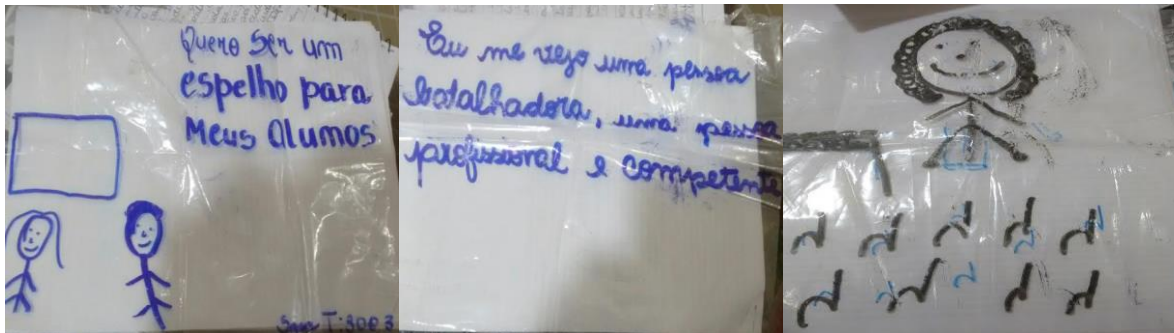 Quero Ser um
espelho para
Meus Alumos
Eu me vejo uma pessoa
batalhadora, uma pessoa
profissional e competente
T: 3003